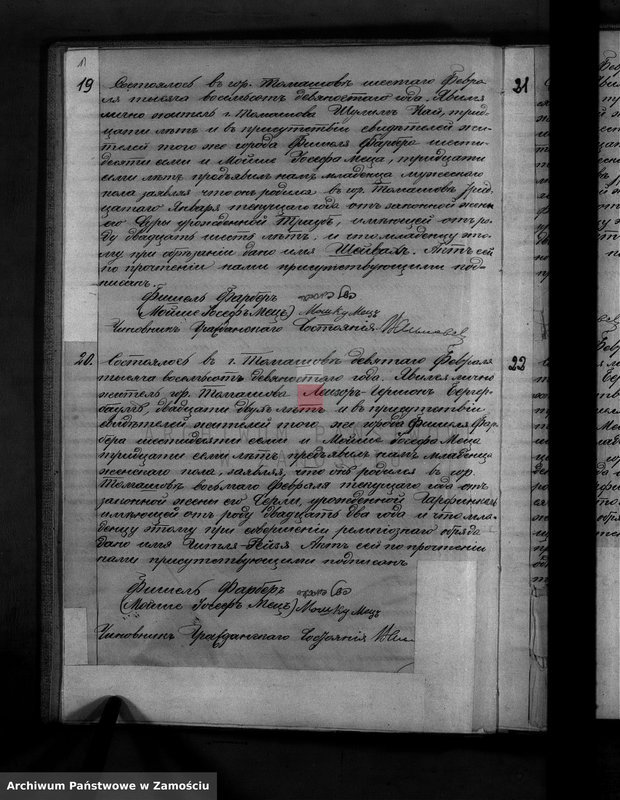 19
Состоялось въ гор. Томашовѣ шестаго Февра-
ля тысяча восемьсотъ девяностаго года. Явился
лично житель г. Томашова Шулимъ Кац, трид-
цати лѣтъ и въ присутствіи свидѣтелей жи-
телей того же города Фишеля Фарбера шести-
десяти семи и Мойше Іосефа Меца, тридцати
семи лѣтъ предъявилъ намъ младенца мужескаго
пола заявляя что онъ родился въ гор. Томашовѣ трид-
цатаго Января текущаго года отъ законной жены
его Суры урожденной имѣющей отъ ро-
ду двадцать шесть лѣтъ. и что младенцу это-
му при обрѣзаніи дано имя Шейвахъ. Актъ сей
по прочтеніи нами присутствующими под-
писанъ.
Фишель Фарберъ
(Мойше Іосефъ Мецъ) Мошку Мецъ
Чиновникъ Гражданскаго Состоянія
20.
Состоялось въ г. Томашовѣ девятаго Февраля
тысяча восемьсотъ девяностаго года. Явился лично
житель гор. Томашова Лейзоръ Бергер-
баумъ, двадцати двухъ лѣтъ и въ присутствіи
свидѣтелей жителей того же города Фишеля Фар-
бера шестидесяти семи и Мойше Іосефа Меца
тридцати семи лѣтъ предъявилъ намъ младенца
женскаго пола, заявляя, что онъ родился въ гор.
Томашовѣ восьмаго Февраля текущаго года отъ
законной жены его Перли, урожденной
имѣющей отъ роду двадцать два года и что мла-
денцу этому при совершеніи религіознаго обряда
дано имя Гитля-Рейзя Актъ сей по прочтеніи
нами присутствующими подписанъ
Фишель Фарберъ
(Мойше Іосефъ Мецъ) Мошку Мецъ
Чиновникъ Гражданскаго Состоянія
21
22
Archiwum Państwowe w Zamościu